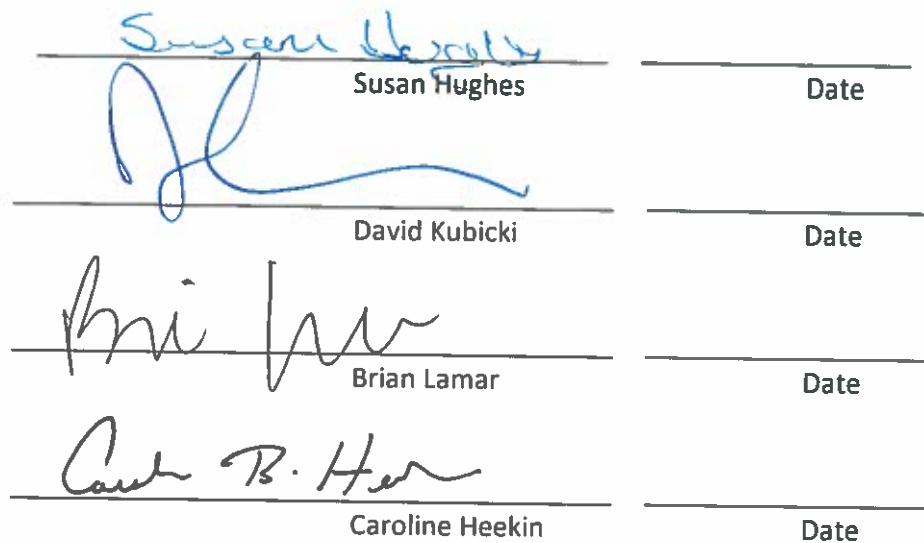 Susan Hughes
Susan Hughes Date
David Kubicki Date
Brian Lamar Date
Caroline B. Hee
Caroline Heekin Date